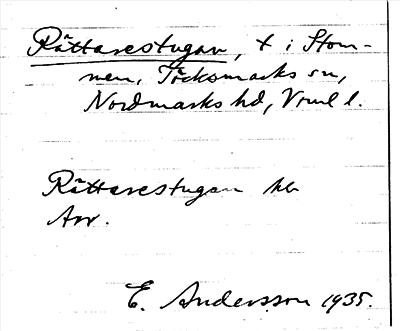 Rättarestugan, + i Stom-
men, Töcksmarks sn,
Nordmarks hd, Vrml l.
Rättarestugan
Avv.
E. Andersson 1935.